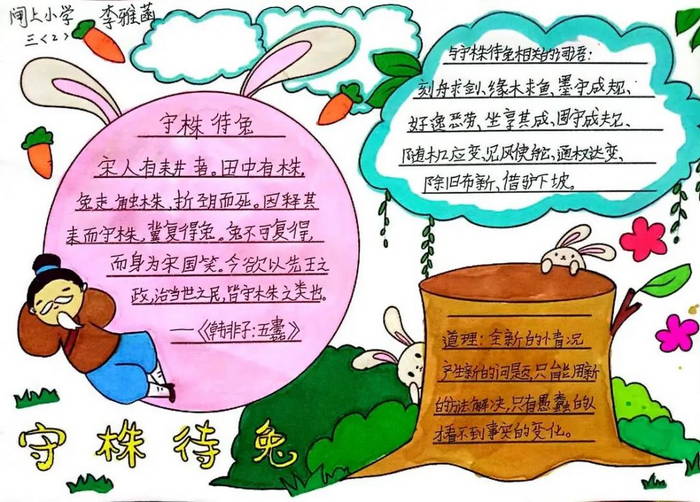 闸上小学 李雅菡
三<2>
守株待兔
宋人有耕者。田中有株,
兔走触株,折颈而死。因释其
耒而守株,冀复得兔。兔不可复得,
而身为宋国笑。今欲以先王之
政,治当世之民,皆守株之类也。
——《韩非子·五蠹》
与守株待兔相关的词语:
刻舟求剑、缘木求鱼、墨守成规、
好逸恶劳、坐享其成、固守成规、
随机应变、见风使舵、通权达变、
除旧布新、借驴下坡。
道理:全新的情况
产生新的问题,只能用新
的方法解决,只有愚蠢的人
才看不到事实的变化。
守株待兔